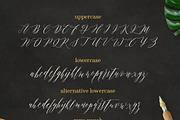 uppercase
A B C D E F G H I J K L M
N O P Q R S T U V W X Y Z
lowercase
abcdefghijklmnopqrstuvwxyz
alternative lowercase
abcdefghijklmnopqrstuvwxyz